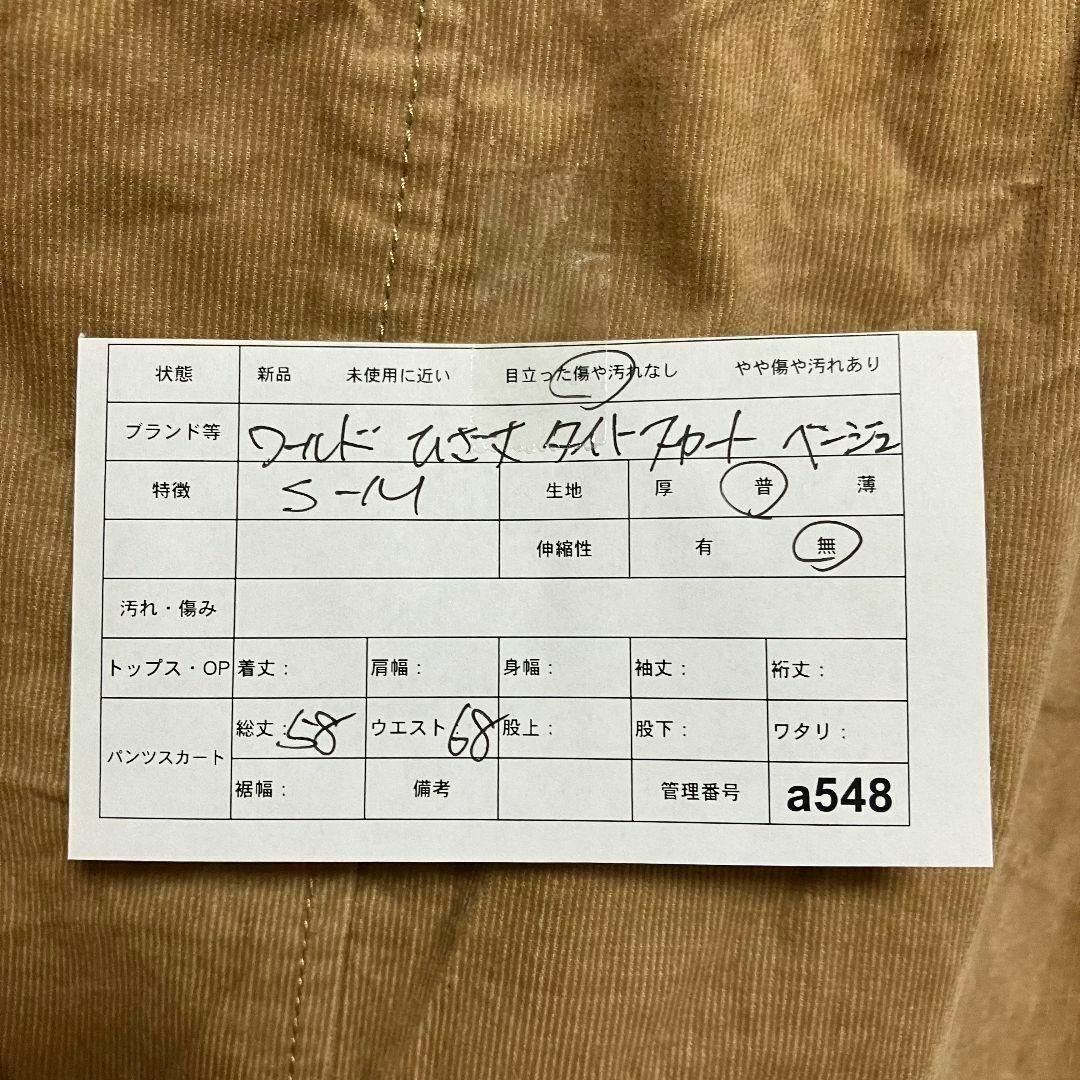 状態 新品 未使用に近い 目立った傷や汚れなし やや傷や汚れあり
ブランド等 ワールド ひざ丈 タイトスカート ベージュ
特徴 S-M 生地 厚 普 薄
伸縮性 有 無
汚れ・傷み
トップス・OP 着丈: 肩幅: 身幅: 袖丈: 裄丈:
パンツスカート 総丈:58 ウエスト:68 股上: 股下: ワタリ:
裾幅: 備考 管理番号 a548